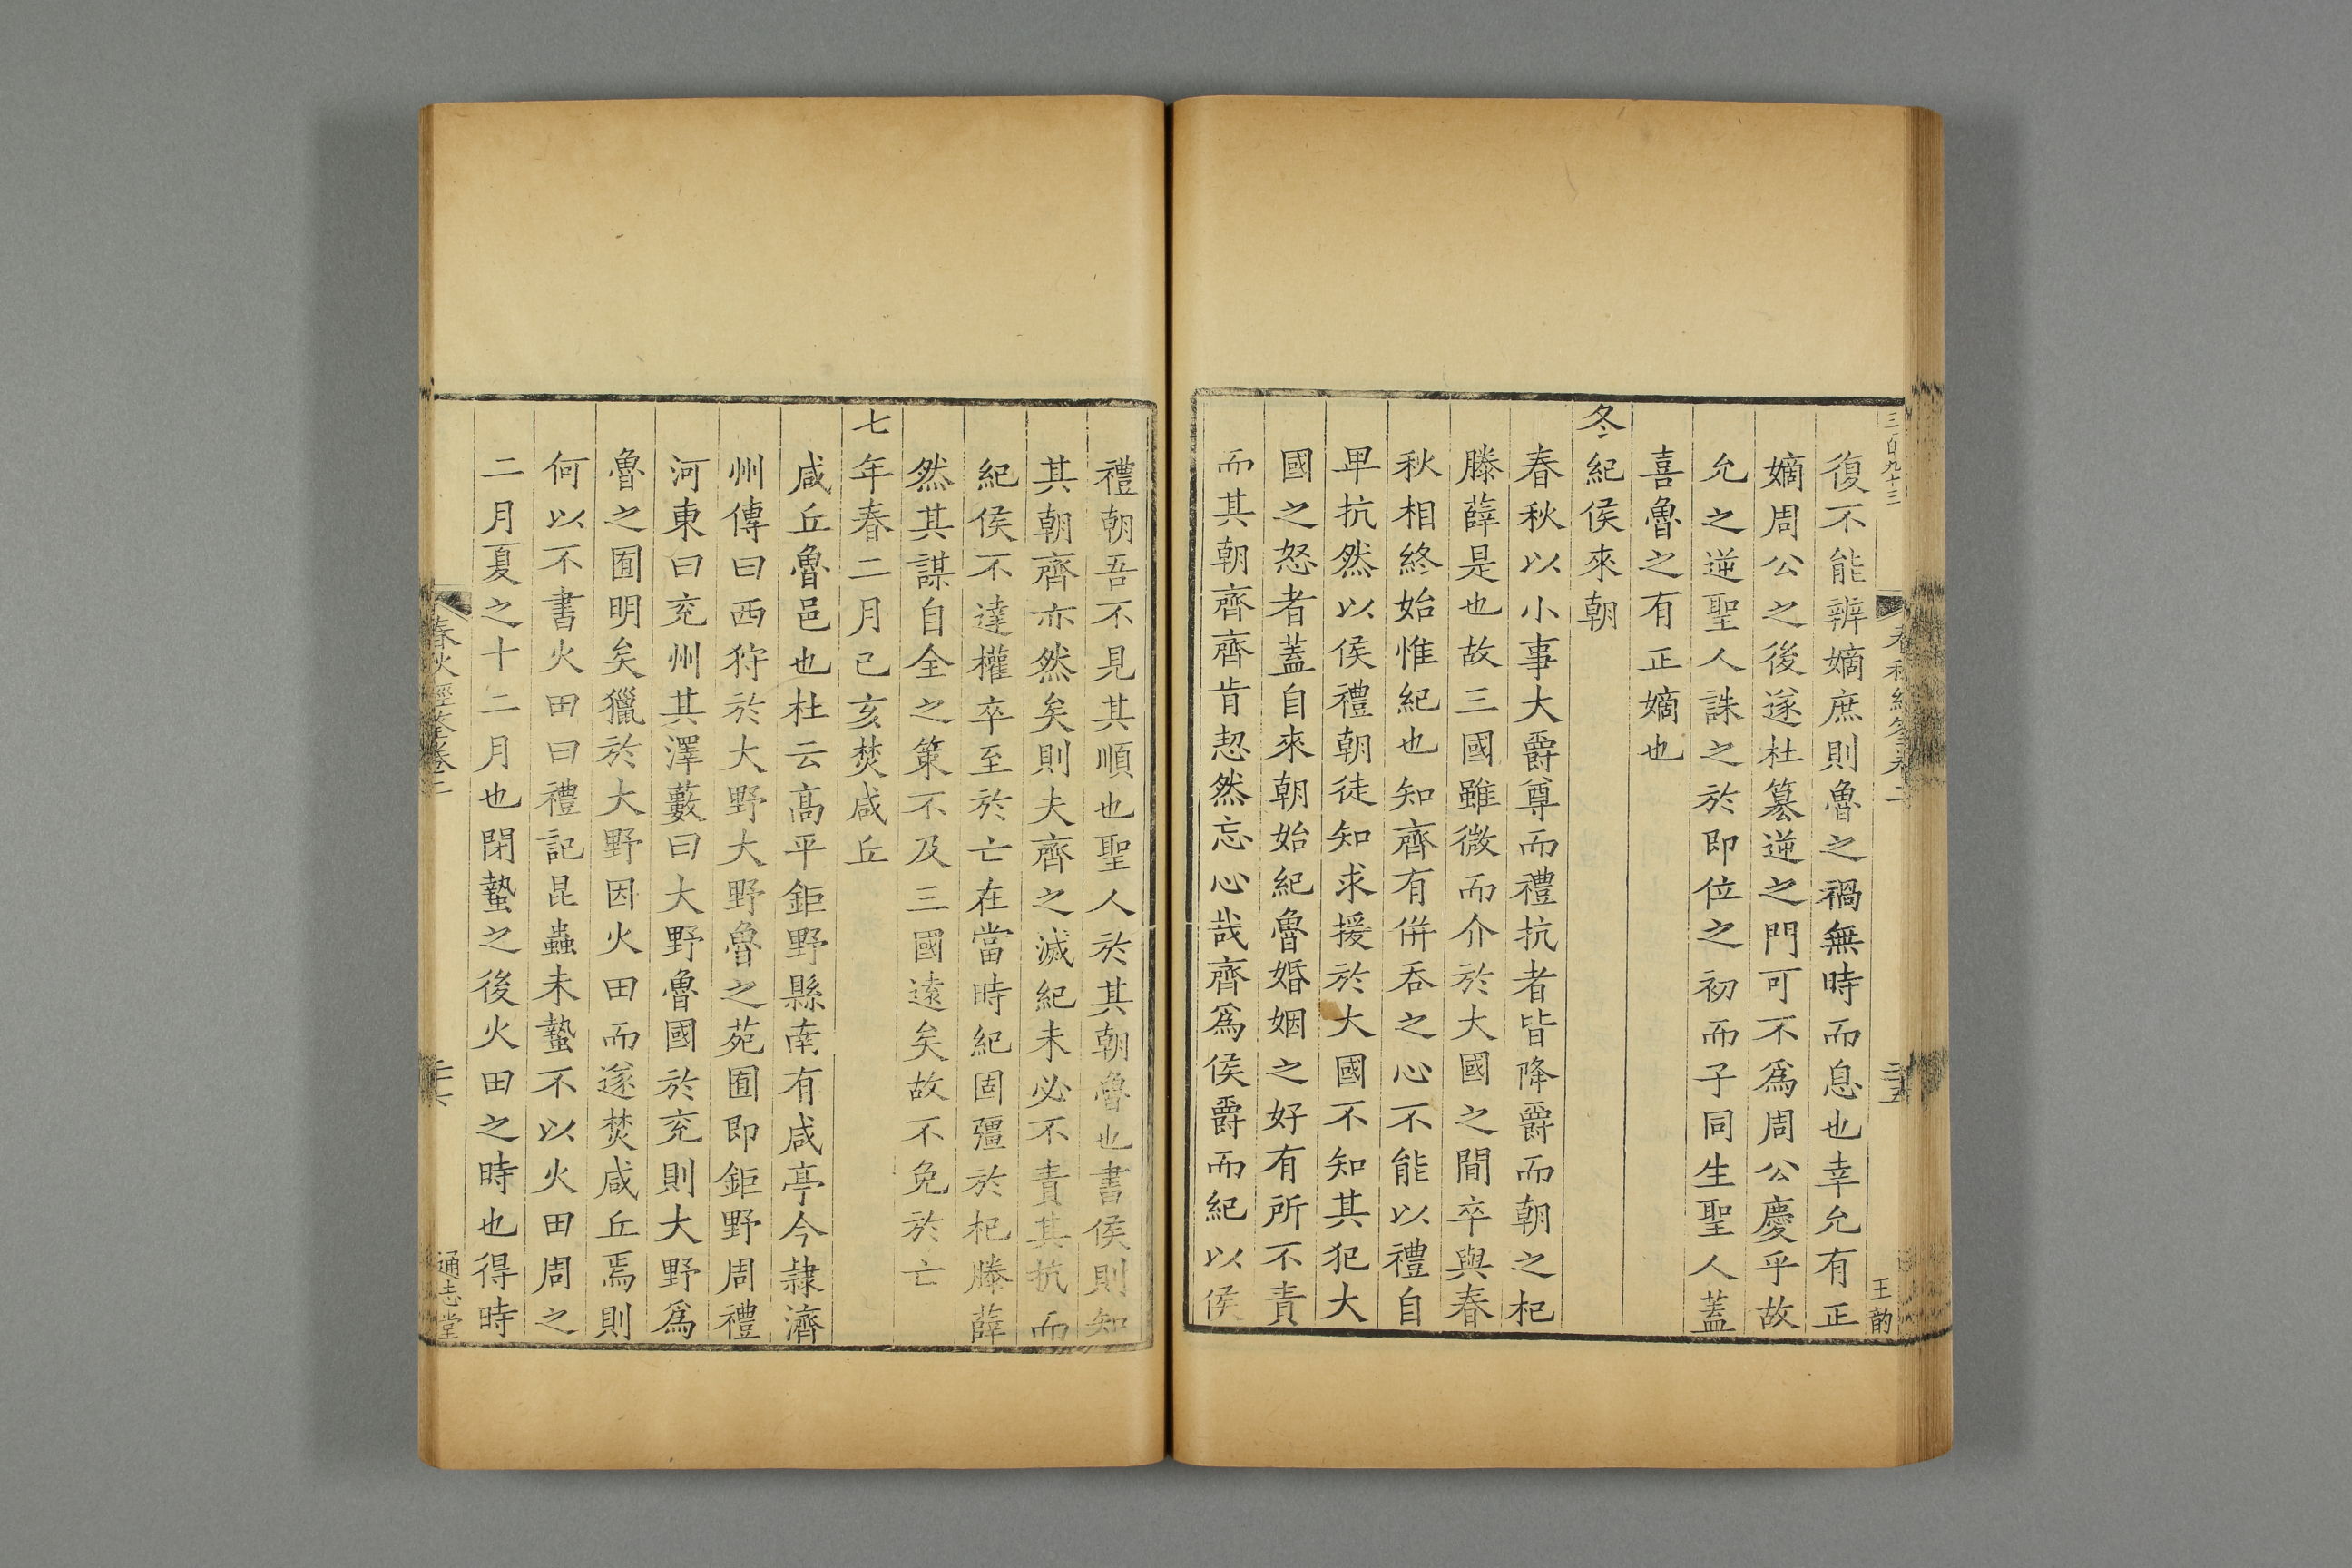 三百九十三
王韵
復不能辨嫡庶則魯之禍無時而息也幸允有正
嫡周公之後遂杜簒逆之門可不爲周公慶乎故
允之逆聖人誅之於即位之初而子同生聖人蓋
喜魯之有正嫡也
冬紀侯來朝
春秋以小事大爵尊而禮抗者皆降爵而朝之杞
滕薛是也故三國雖微而介於大國之間卒與春
秋相終始惟紀也知齊有併吞之心不能以禮自
卑抗然以侯禮朝徒知求援於大國不知其犯大
國之怒者蓋自來朝始紀魯婚姻之好有所不責
而其朝齊齊肯恝然忘心哉齊爲侯爵而紀以侯
禮朝吾不見其順也聖人於其朝魯也書侯則知
其朝齊亦然矣則夫齊之滅紀未必不責其抗而
紀侯不達權卒至於亡在當時紀固彊於杞滕薛
然其謀自全之策不及三國遠矣故不免於亡
七年春二月己亥焚咸丘
咸丘魯邑也杜云高平鉅野縣南有咸亭今隸濟
州傳曰西狩於大野大野魯之苑囿即鉅野周禮
河東曰兗州其澤藪曰大野魯國於兗則大野爲
魯之囿明矣獵於大野因火田而遂焚咸丘焉則
何以不書火田曰禮記昆蟲未蟄不以火田周之
二月夏之十二月也閉蟄之後火田之時也得時
春秋經筌卷二
二十六
通志堂